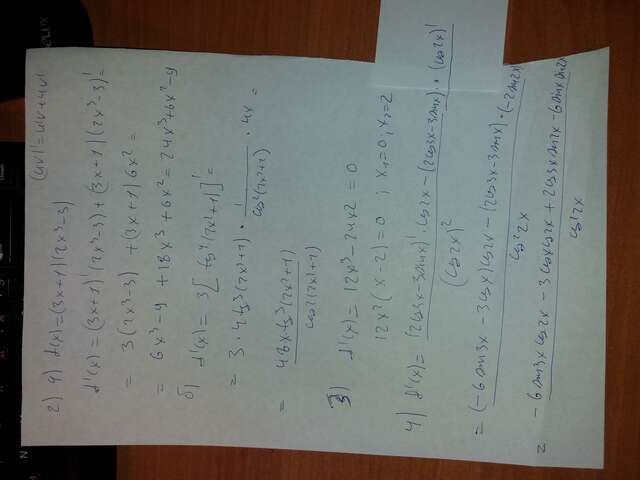 2) 1) f(x)=(3x+1)(2x³-3) (uv)'=u'v+uv'
f'(x)=(3x+1)'(2x³-3)+(3x+1)(2x³-3)'=
= 3(2x³-3)+(3x+1)6x²=
= 6x³-9+18x³+6x²=24x³+6x²-9
б) f'(x)=3[tg⁴(2x²+1)]'=
= 3·4tg³(2x²+1)· 1/cos²(2x²+1) ·4x=
= 48xtg³(2x²+1)/cos²(2x²+1)
3) f'(x)=12x³-24x²=0
12x²(x-2)=0; x₁=0; x₂=2
4) f'(x)=(2cos3x-3sinx)'·cos2x-(2cos3x-3sinx)·(cos2x)'/(cos2x)²
= (-6sin3x-3cosx)cos2x-(2cos3x-3sinx)·(-2sin2x)/cos²2x
= -6sin3xcos2x-3cosxcos2x+2cos3xsin2x-6sinxsin2x/cos²2x